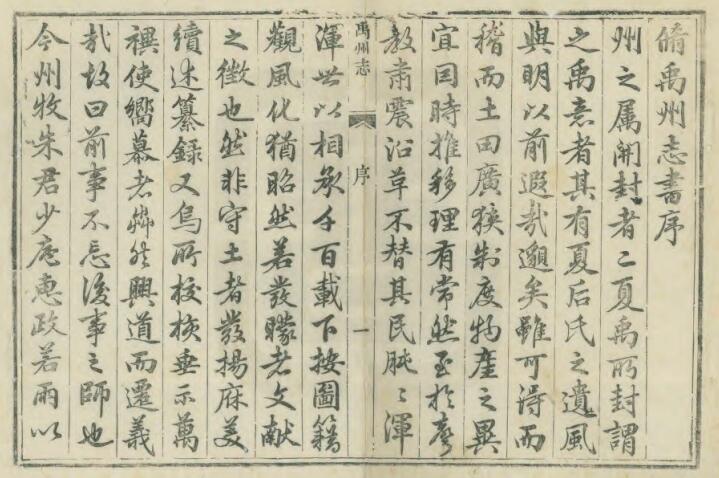 脩禹州志書序
州之属開封者二夏禹所封謂
之禹意者其有夏后氏之遺風
與明以前遐哉邈矣雖可得而
稽而土田廣狹制度物産之異
宜因時推移理有常然至於聲
教肅震沿革不替其民肫〻渾
禹州志
序
一
渾世以相承千百載下按圖籍
觀風化猶昭然若發矇者文献
之徵也然非守土者發揚庥美
續述纂錄又烏所校核垂示萬
禩使嚮慕者犂然興道而遷義
哉故曰前事不忘後事之師也
今州牧朱君少庵惠政若雨以